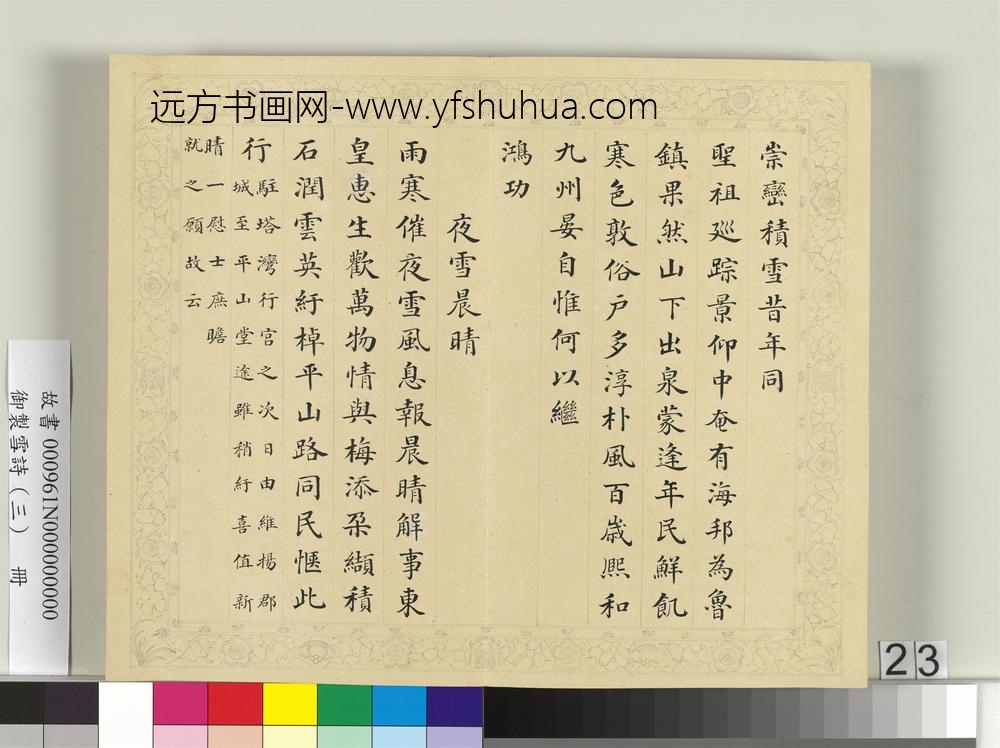 远方书画网-www.yfshuhua.com
崇巒積雪昔年同
聖祖廵踪景仰中奄有海邦為魯
鎮果然山下出泉蒙逢年民鮮飢
寒色敦俗户多淳朴風百歳熈和
九州晏自惟何以繼
鴻功
夜雪晨晴
雨寒催夜雪風息報晨晴解事東
皇恵生歡萬物情與梅添朶纈積
石潤雲英紆棹平山路同民愜此
行駐塔灣行宫之次日由維揚郡
城至平山堂途雖稍紆喜值新
晴一慰士庶瞻
就之願故云
故書 000961N000000000
御製雪詩（三） 冊
23